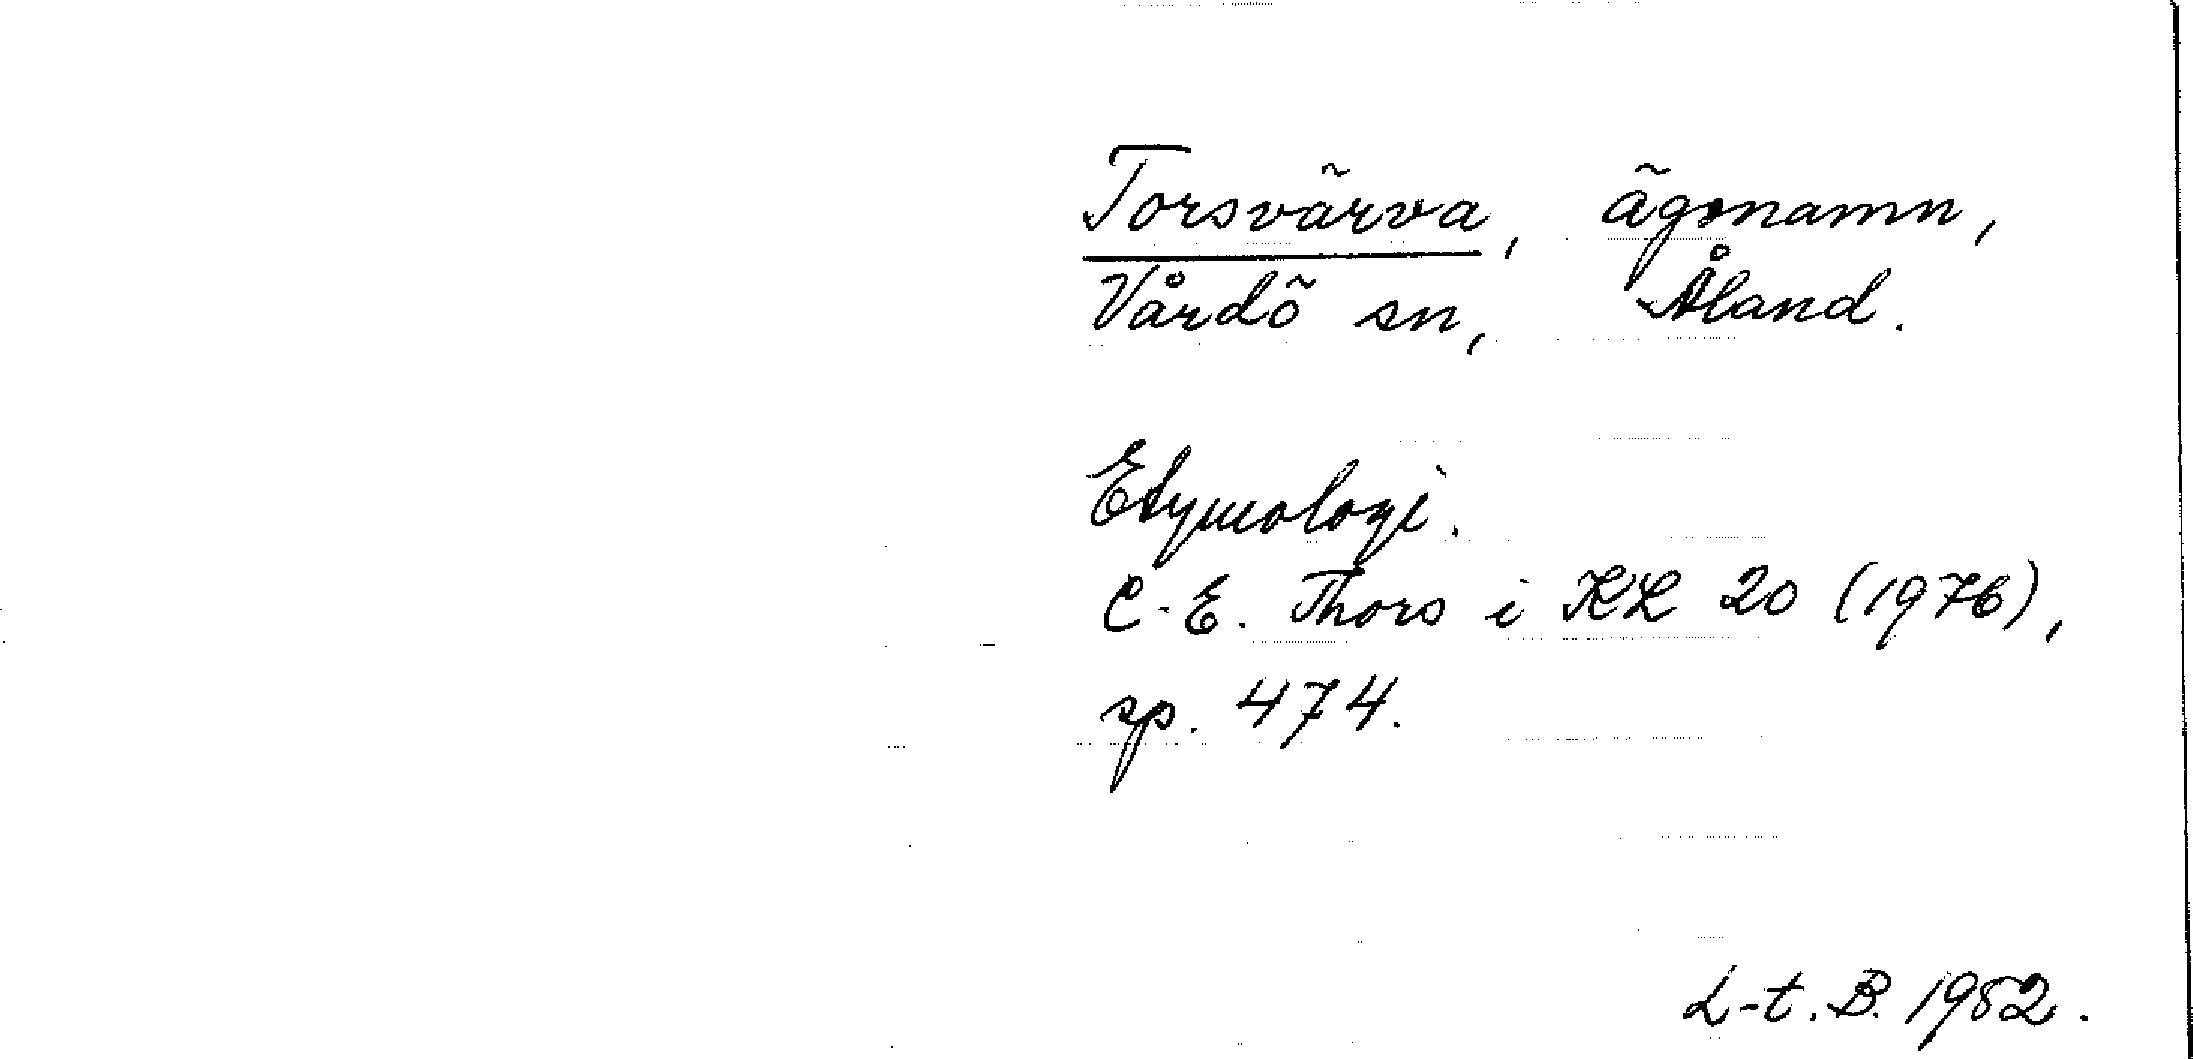 Torsvärva, ägonamn,
Vårdö sn, Åland.
Etymologi.
C.-E. Thors i KL 20 (1976),
sp. 474.
L-t. B. 1982.